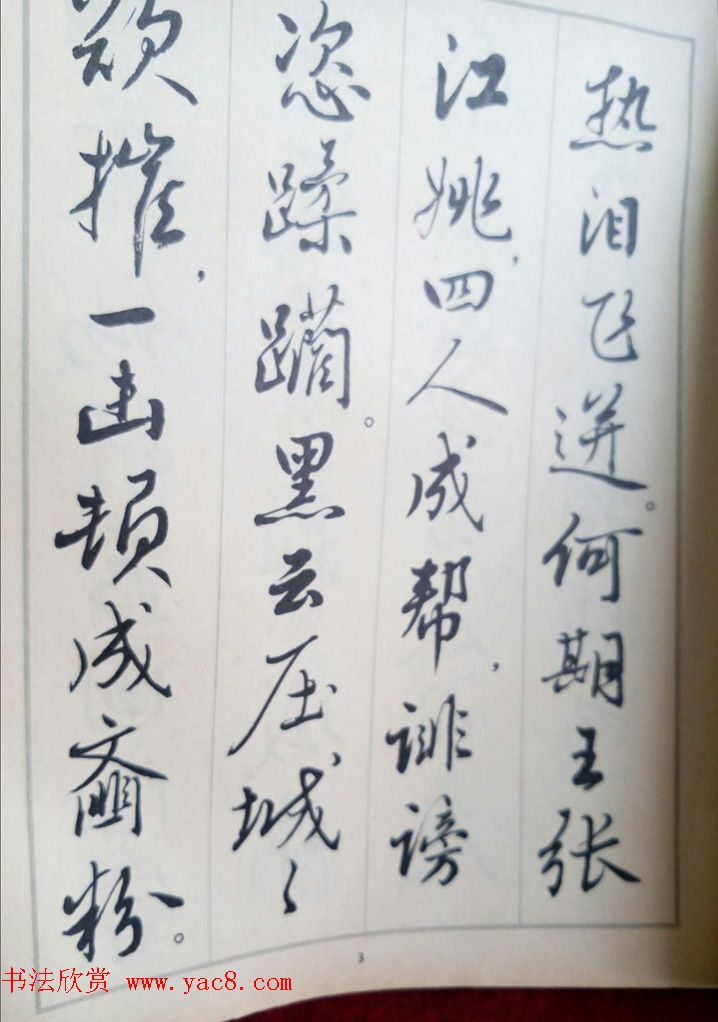 热泪飞迸。何期王张
江姚，四人成帮，诽谤
恣蹂躏。黑云压城〻
欲摧，一击顿成齑粉。
3
书法欣赏 www.yac8.com